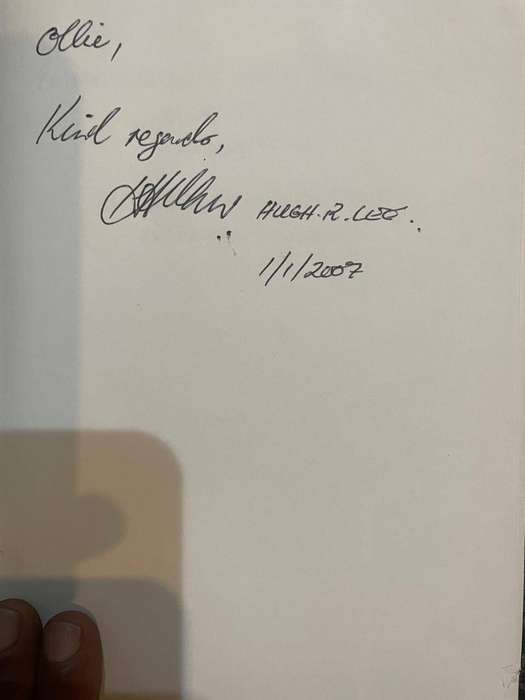 Ollie,
Kind regards,
HUGH.R.LEE.
1/1/2007